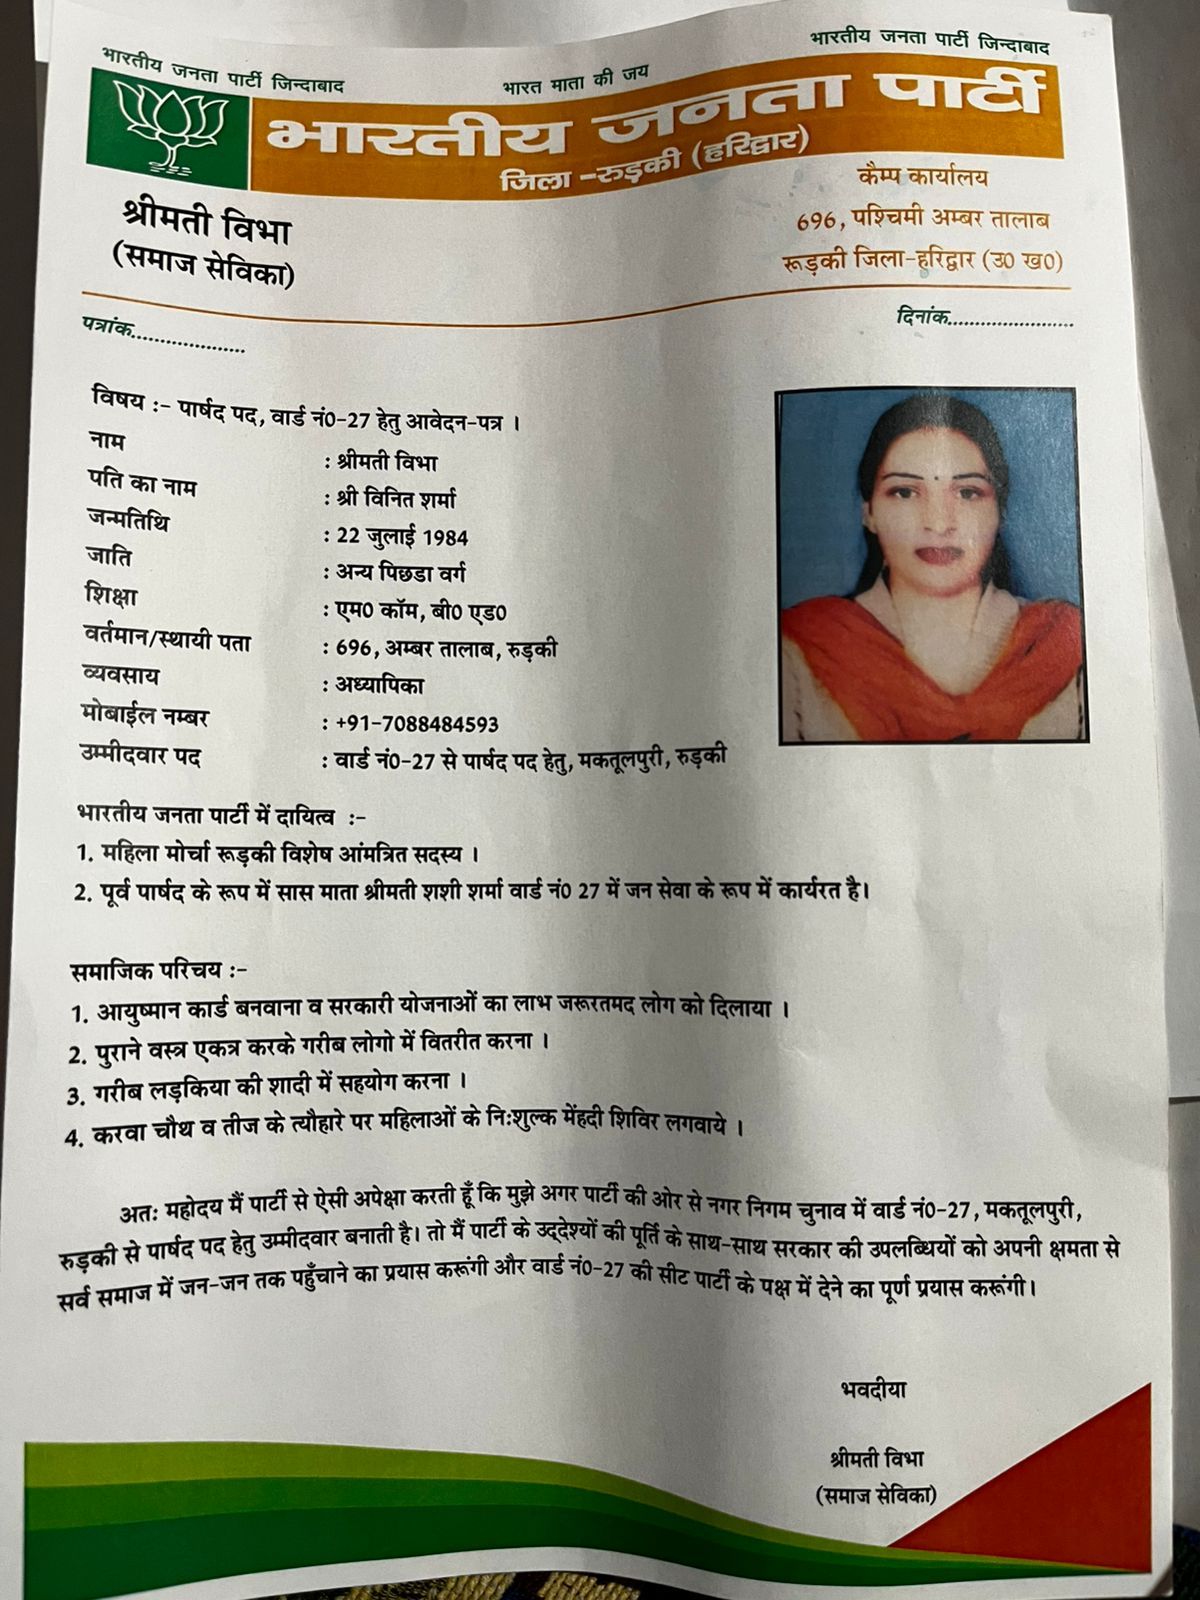 भारतीय जनता पार्टी जिन्दाबाद
भारत माता की जय
भारतीय जनता पार्टी जिन्दाबाद
भारतीय जनता पार्टी
जिला -रुड़की (हरिद्वार)
श्रीमती विभा
(समाज सेविका)
कैम्प कार्यालय
696, पश्चिमी अम्बर तालाब
रूड़की जिला-हरिद्वार (उ0 ख0)
पत्रांक....................
दिनांक.......................
विषय :- पार्षद पद, वार्ड नं0-27 हेतु आवेदन-पत्र ।
नाम : श्रीमती विभा
पति का नाम : श्री विनित शर्मा
जन्मतिथि : 22 जुलाई 1984
जाति : अन्य पिछडा वर्ग
शिक्षा : एम0 कॉम, बी0 एड0
वर्तमान/स्थायी पता : 696, अम्बर तालाब, रुड़की
व्यवसाय : अध्यापिका
मोबाईल नम्बर : +91-7088484593
उम्मीदवार पद : वार्ड नं0-27 से पार्षद पद हेतु, मकतूलपुरी, रुड़की
भारतीय जनता पार्टी में दायित्व :-
1. महिला मोर्चा रूड़की विशेष आंमत्रित सदस्य ।
2. पूर्व पार्षद के रूप में सास माता श्रीमती शशी शर्मा वार्ड नं0 27 में जन सेवा के रूप में कार्यरत है।
समाजिक परिचय :-
1. आयुष्मान कार्ड बनवाना व सरकारी योजनाओं का लाभ जरूरतमद लोग को दिलाया ।
2. पुराने वस्त्र एकत्र करके गरीब लोगो में वितरीत करना ।
3. गरीब लड़किया की शादी में सहयोग करना ।
4. करवा चौथ व तीज के त्यौहारे पर महिलाओं के निःशुल्क मेंहदी शिविर लगवाये ।
अतः महोदय मैं पार्टी से ऐसी अपेक्षा करती हूँ कि मुझे अगर पार्टी की ओर से नगर निगम चुनाव में वार्ड नं0-27, मकतूलपुरी,
रुड़की से पार्षद पद हेतु उम्मीदवार बनाती है। तो मैं पार्टी के उद्देश्यों की पूर्ति के साथ-साथ सरकार की उपलब्धियों को अपनी क्षमता से
सर्व समाज में जन-जन तक पहुँचाने का प्रयास करूंगी और वार्ड नं0-27 की सीट पार्टी के पक्ष में देने का पूर्ण प्रयास करूंगी।
भवदीया
श्रीमती विभा
(समाज सेविका)